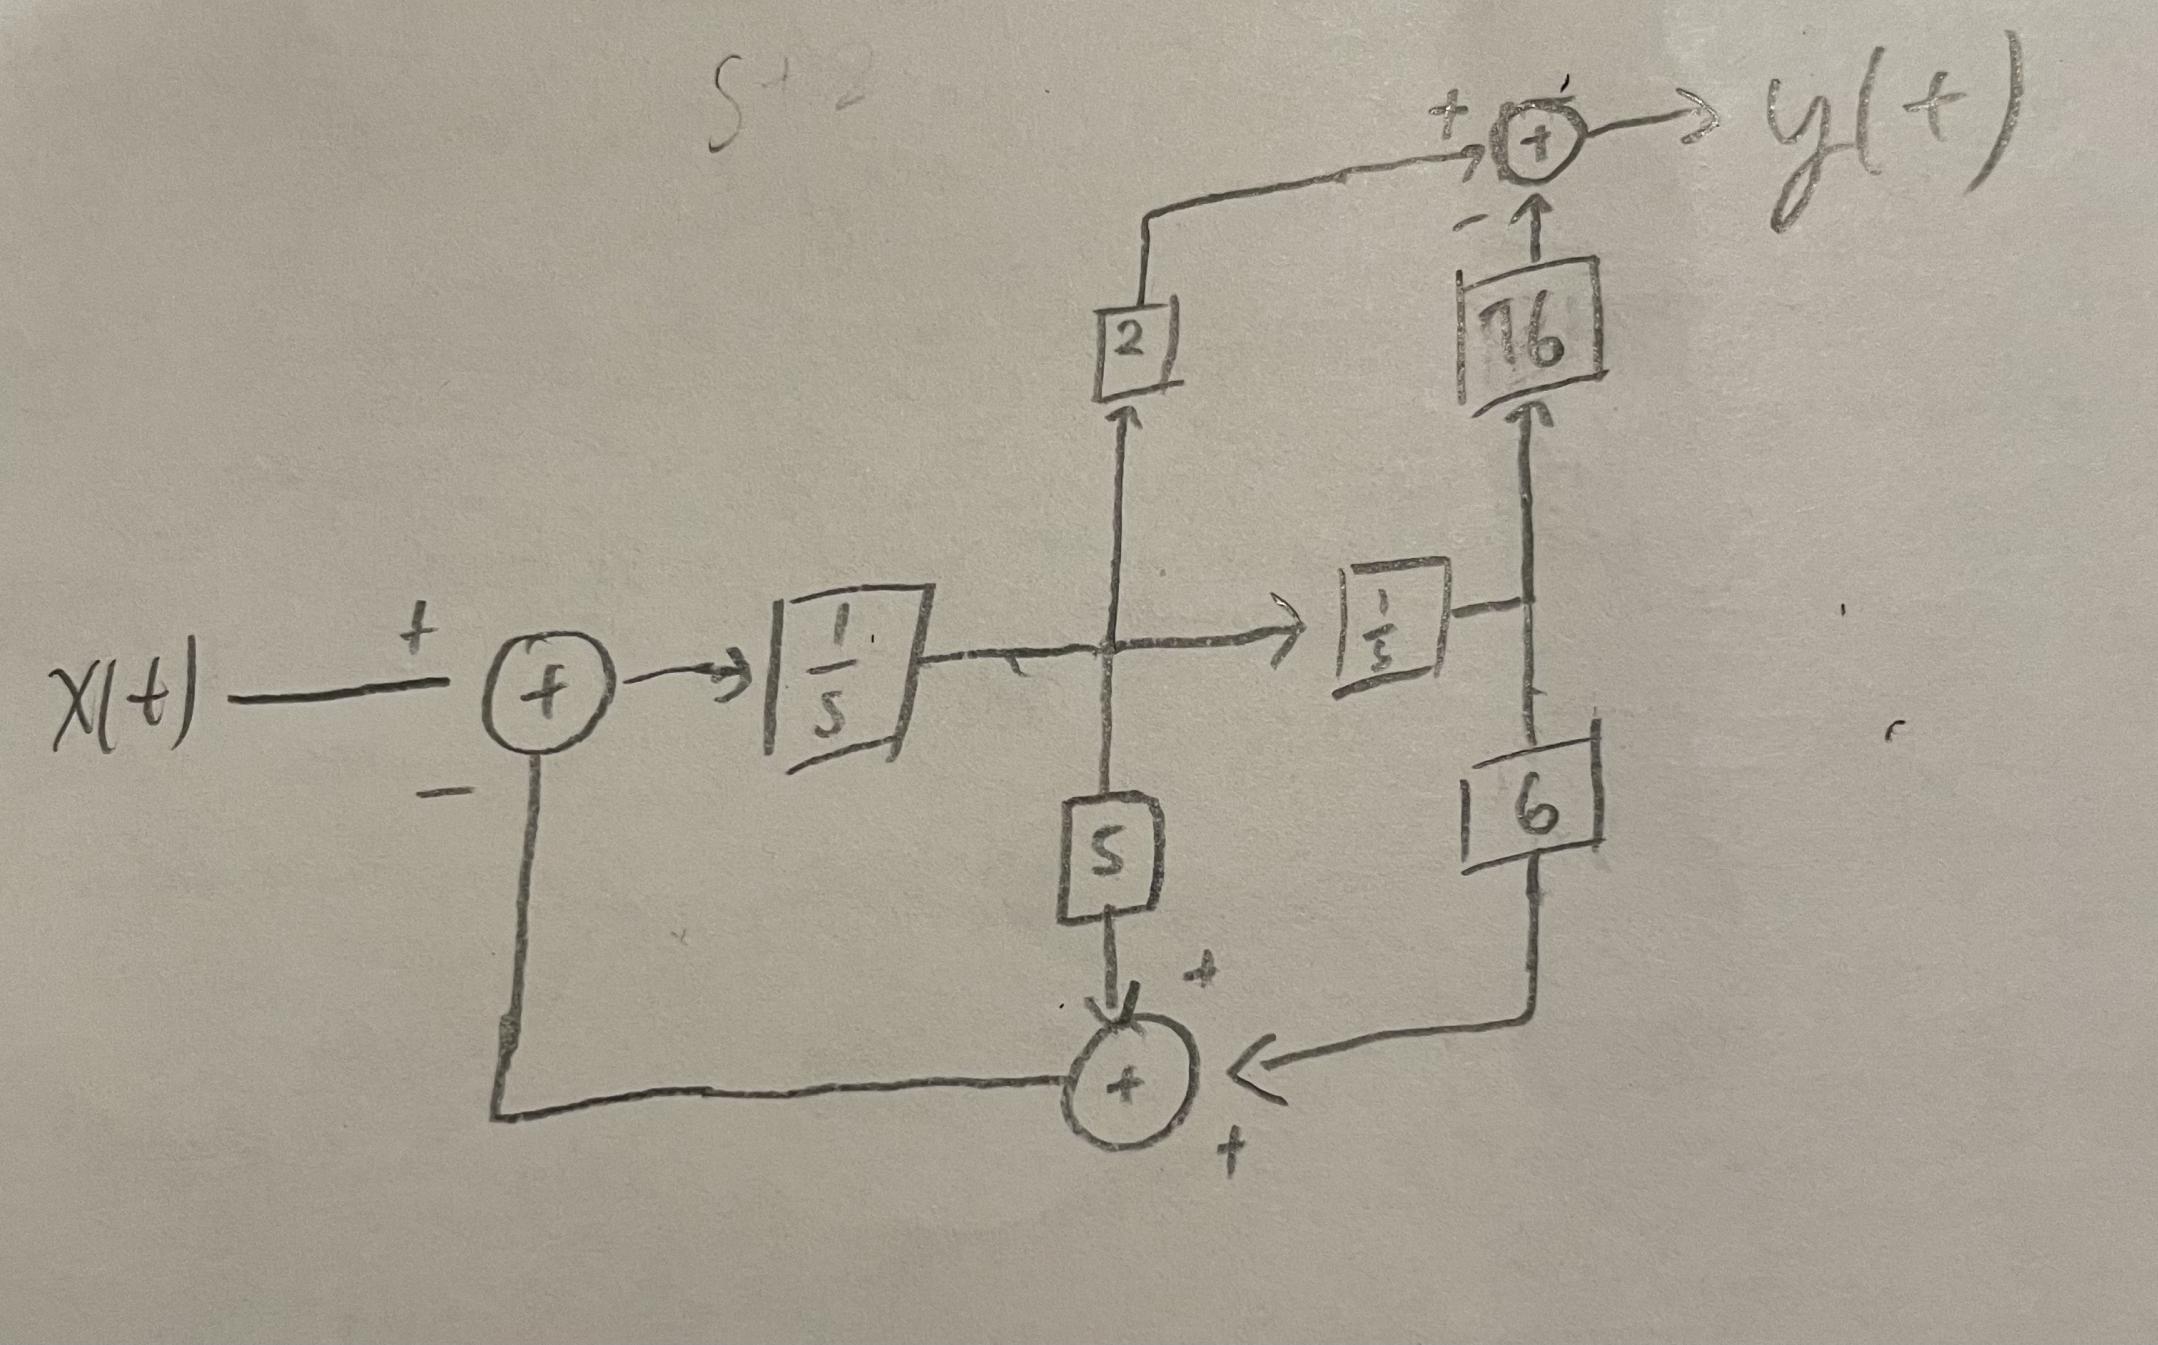 S+2
+ + y(t)
-
2 16
x(t) + + 1/s 1/s
-
5 6
+
+
+